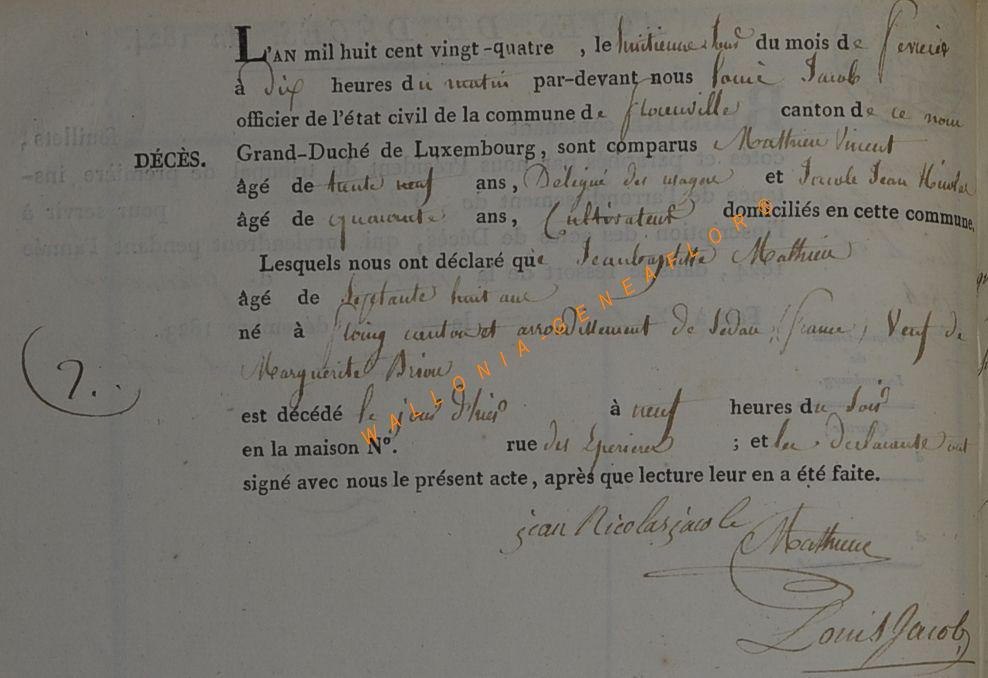 L'AN mil huit cent vingt-quatre , le huitieme Jour du mois de fevrier
à Dix heures du matin par-devant nous Louis Jacob
officier de l'état civil de la commune de florenville canton de ce nom
DÉCÈS. Grand-Duché de Luxembourg, sont comparus Mathieu Vincent
âgé de trente neuf ans, Délégué des et Jacole Jean Nicolas
âgé de quarante ans, Cultivateur domiciliés en cette commune.
Lesquels nous ont déclaré que Jeanbaptiste Mathieu
âgé de Septante huit ans
né à floing canton et arrondissement de Sedan (france) Veuf de
Marguerite
7.
est décédé le jour d'hier à neuf heures du Soir
en la maison N°. rue des ; et les declarants ont
signé avec nous le présent acte, après que lecture leur en a été faite.
jean Nicolas jacole
Mathieu
Louis Jacob
WALLONIA-GENEAFLOR©